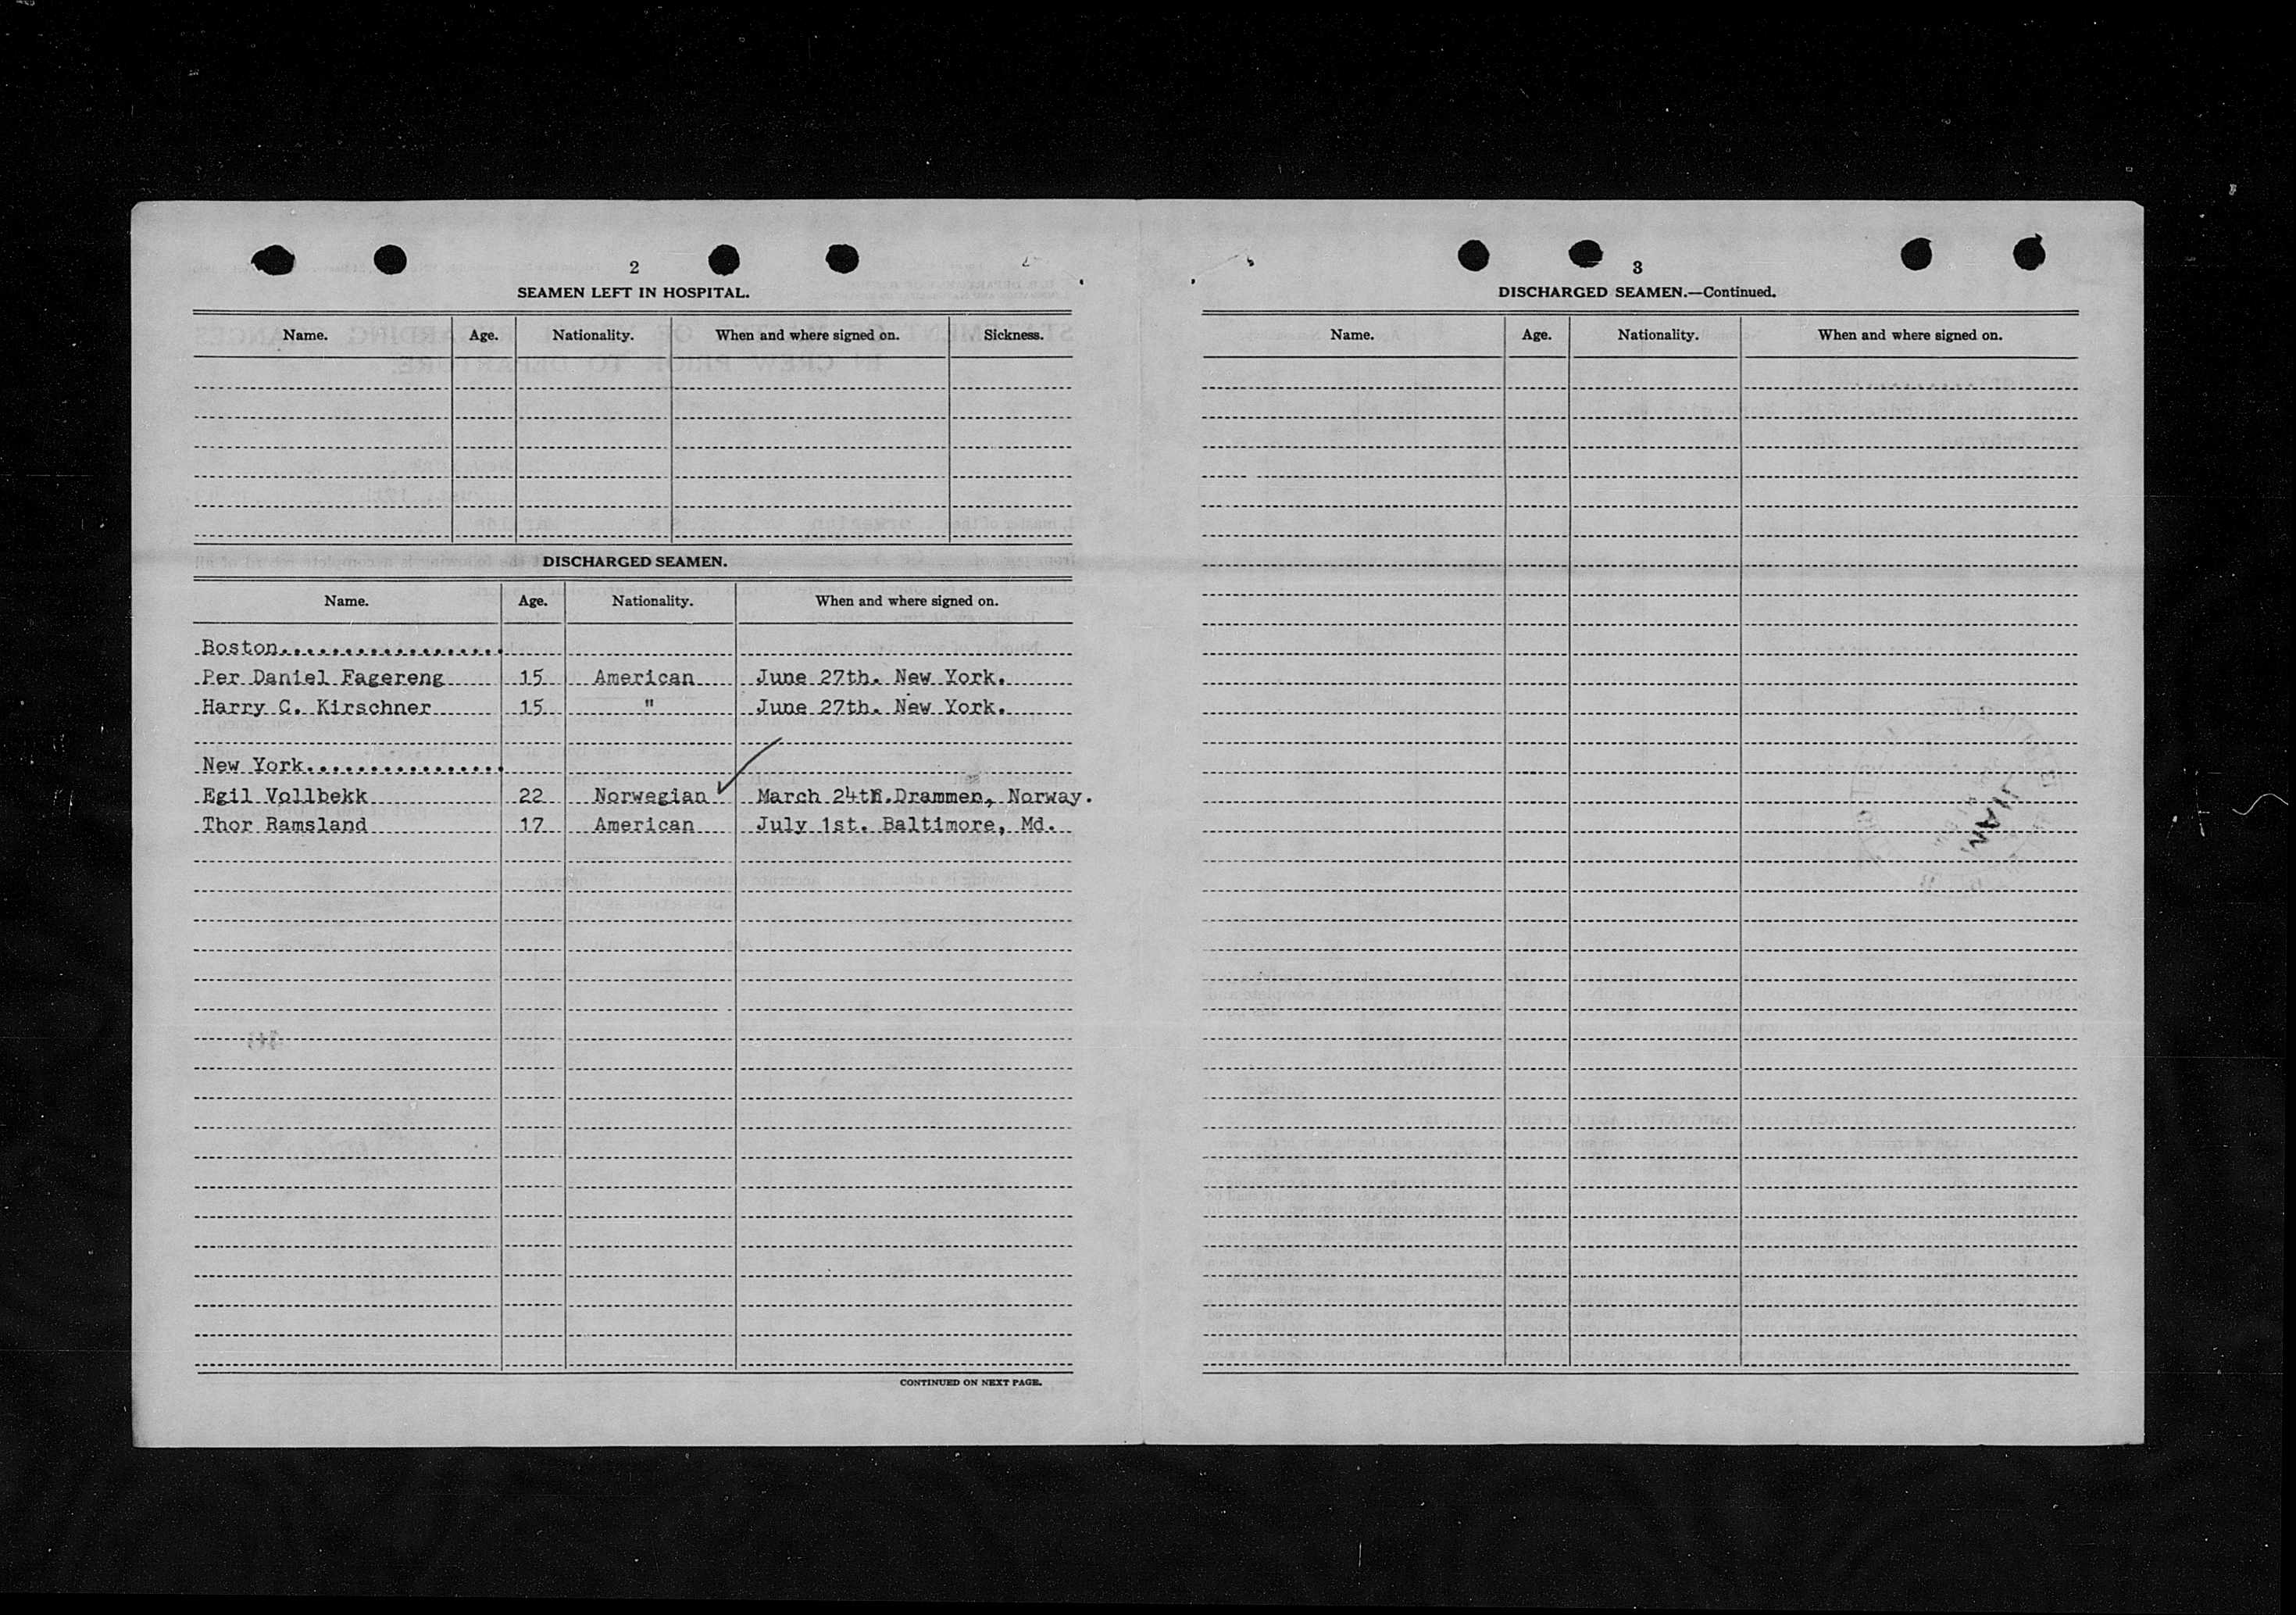 2
SEAMEN LEFT IN HOSPITAL.
Name. Age. Nationality. When and where signed on. Sickness.
DISCHARGED SEAMEN.
Name. Age. Nationality. When and where signed on.
Boston..................
Per Daniel Fagereng 15 American June 27th. New York.
Harry C. Kirschner 15 " June 27th. New York.
New York................
Egil Vollbekk 22 Norwegian March 24th.Drammen, Norway.
Thor Ramsland 17 American July 1st. Baltimore, Md.
CONTINUED ON NEXT PAGE.
3
DISCHARGED SEAMEN.—Continued.
Name. Age. Nationality. When and where signed on.